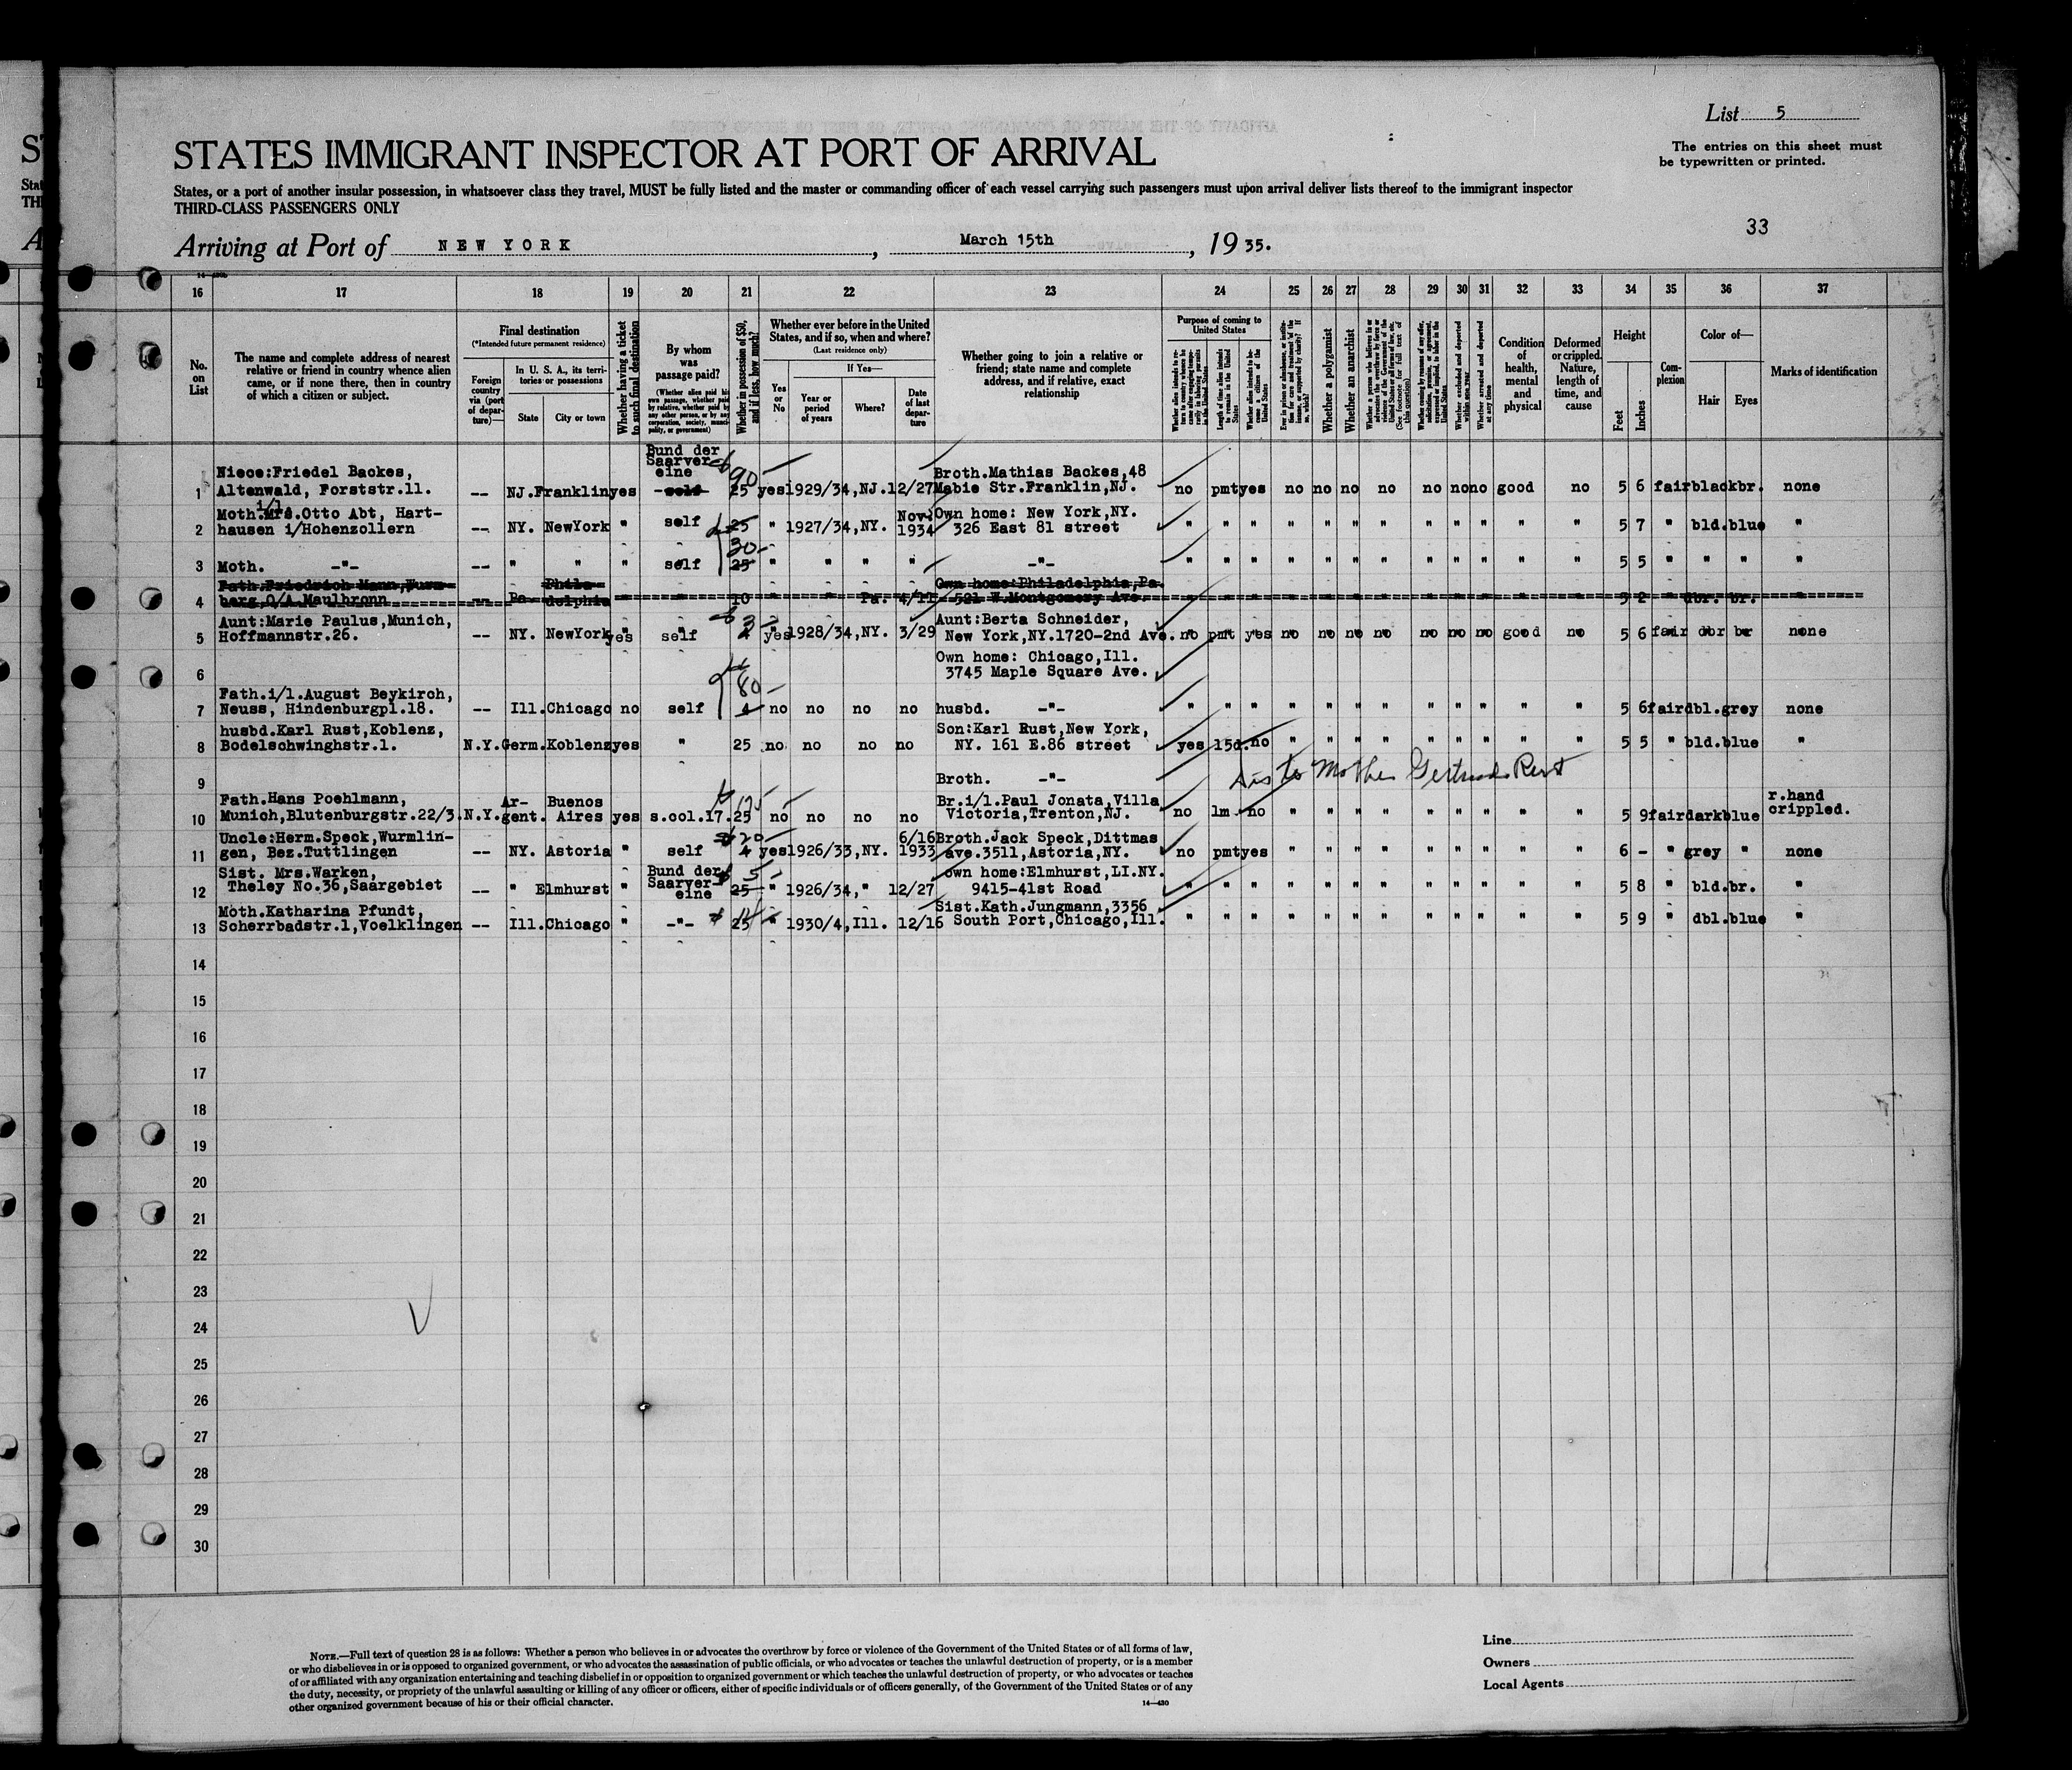 List 5
The entries on this sheet must
be typewritten or printed.
STATES IMMIGRANT INSPECTOR AT PORT OF ARRIVAL
States, or a port of another insular possession, in whatsoever class they travel, MUST be fully listed and the master or commanding officer of each vessel carrying such passengers must upon arrival deliver lists thereof to the immigrant inspector
THIRD-CLASS PASSENGERS ONLY
33
Arriving at Port of NEW YORK, March 15th, 1935.
16 17 18 19 20 21 22 23 24 25 26 27 28 29 30 31 32 33 34 35 36 37
No. on List
The name and complete address of nearest
relative or friend in country whence alien
came, or if none there, then in country
of which a citizen or subject.
Final destination
(*Intended future permanent residence)
Foreign country via (port of departure)—
In U. S. A., its territories or possessions
State
City or town
Whether having a ticket to such final destination
By whom was passage paid?
(Whether alien paid his own passage, whether paid by relative, whether paid by any other person, or by any corporation, society, municipality, or government)
Whether in possession of $50, and if less, how much?
Whether ever before in the United States, and if so, when and where?
(Last residence only)
Yes or No
If Yes—
Year or period of years
Where?
Date of last departure
Whether going to join a relative or
friend; state name and complete
address, and if relative, exact
relationship
Purpose of coming to United States
Length of time alien intends to remain in the United States
Whether alien intends to become a citizen of the United States
Whether a polygamist
Whether an anarchist
Condition of health, mental and physical
Deformed or crippled. Nature, length of time, and cause
Height
Feet
Inches
Complexion
Color of—
Hair
Eyes
Marks of identification
Bund der
Saarver-
eine
Niece:Friedel Backes, 90 Broth.Mathias Backes,48
1 Altenwald, Forststr.11. -- NJ. Franklin yes self 25 yes 1929/34,NJ. 12/27 Mabie Str.Franklin,NJ. no pmt yes no no no no no no no good no 5 6 fair black br. none
i/l
Moth.Mrs.Otto Abt, Hart- Nov. Own home: New York,NY.
2 hausen i/Hohenzollern -- NY. NewYork " self 25 " 1927/34,NY. 1934 326 East 81 street " " " " " " " " " " " " 5 7 " bld. blue "
30
3 Moth. -"- -- " " " self 25 " " " " -"- " " " " " " " " " " " " 5 5 " " " "
Fath.Friedrich Mann,Wurm- Phila- Own home:Philadelphia,Pa.
4 berg,O/A.Maulbronn -- Pa. delphia " " 10 " " Pa. 4/11 521 W.Montgomery Ave. 5 2 " dbr. br. "
Aunt:Marie Paulus,Munich, 3 Aunt:Berta Schneider,
5 Hoffmannstr.26. -- NY. NewYork yes self 4 yes 1928/34,NY. 3/29 New York,NY.1720-2nd Ave. no pmt yes no no no no no no no good no 5 6 fair dbr br none
Own home: Chicago,Ill.
6 3745 Maple Square Ave.
Fath.i/l.August Beykirch, 80
7 Neuss, Hindenburgpl.18. -- Ill. Chicago no self 4 no no no no husbd. -"- " " " " " " " " " " " " 5 6 fair dbl. grey none
husbd.Karl Rust,Koblenz, Son:Karl Rust,New York,
8 Bodelschwinghstr.1. N.Y. Germ. Koblenz yes " 25 no no no no NY. 161 E.86 street yes 15d. no " " " " " " " " " 5 5 " bld. blue "
9 Broth. -"- to Mother Gertrude Rust
Fath.Hans Poehlmann, Ar- Buenos Br.i/l.Paul Jonata,Villa r.hand
10 Munich,Blutenburgstr.22/3. N.Y. gent. Aires yes s.col.17. 25 no no no no Victoria,Trenton,NJ. no 1m. no " " " " " " " " " 5 9 fair dark blue crippled.
Uncle:Herm.Speck,Wurmlin- 20 6/16 Broth.Jack Speck,Dittmas
11 gen, Bez.Tuttlingen -- NY. Astoria " self 4 yes 1926/33,NY. 1933 ave.3511,Astoria,NY. no pmt yes " " " " " " " " " 6 - " grey " none
Sist. Mrs.Warken, Bund der 5 own home:Elmhurst,LI.NY.
12 Theley No.36,Saargebiet -- " Elmhurst " Saarver-
eine 25 " 1926/34," 12/27 9415-41st Road " " " " " " " " " " " " 5 8 " bld. br. "
Moth.Katharina Pfundt, Sist.Kath.Jungmann,3356
13 Scherrbadstr.1,Voelklingen -- Ill. Chicago " -"- 25 " 1930/4,Ill. 12/16 South Port,Chicago,Ill. " " " " " " " " " " " " 5 9 " dbl. blue "
14
15
16
17
18
19
20
21
22
23
24
25
26
27
28
29
30
NOTE.—Full text of question 28 is as follows: Whether a person who believes in or advocates the overthrow by force or violence of the Government of the United States or of all forms of law,
or who disbelieves in or is opposed to organized government, or who advocates the assassination of public officials, or who advocates or teaches the unlawful destruction of property, or is a member
of or affiliated with any organization entertaining and teaching disbelief in or opposition to organized government or which teaches the unlawful destruction of property, or who advocates or teaches
the duty, necessity, or propriety of the unlawful assaulting or killing of any officer or officers, either of specific individuals or of officers generally, of the Government of the United States or of any
other organized government because of his or their official character.
14—430
Line
Owners
Local Agents